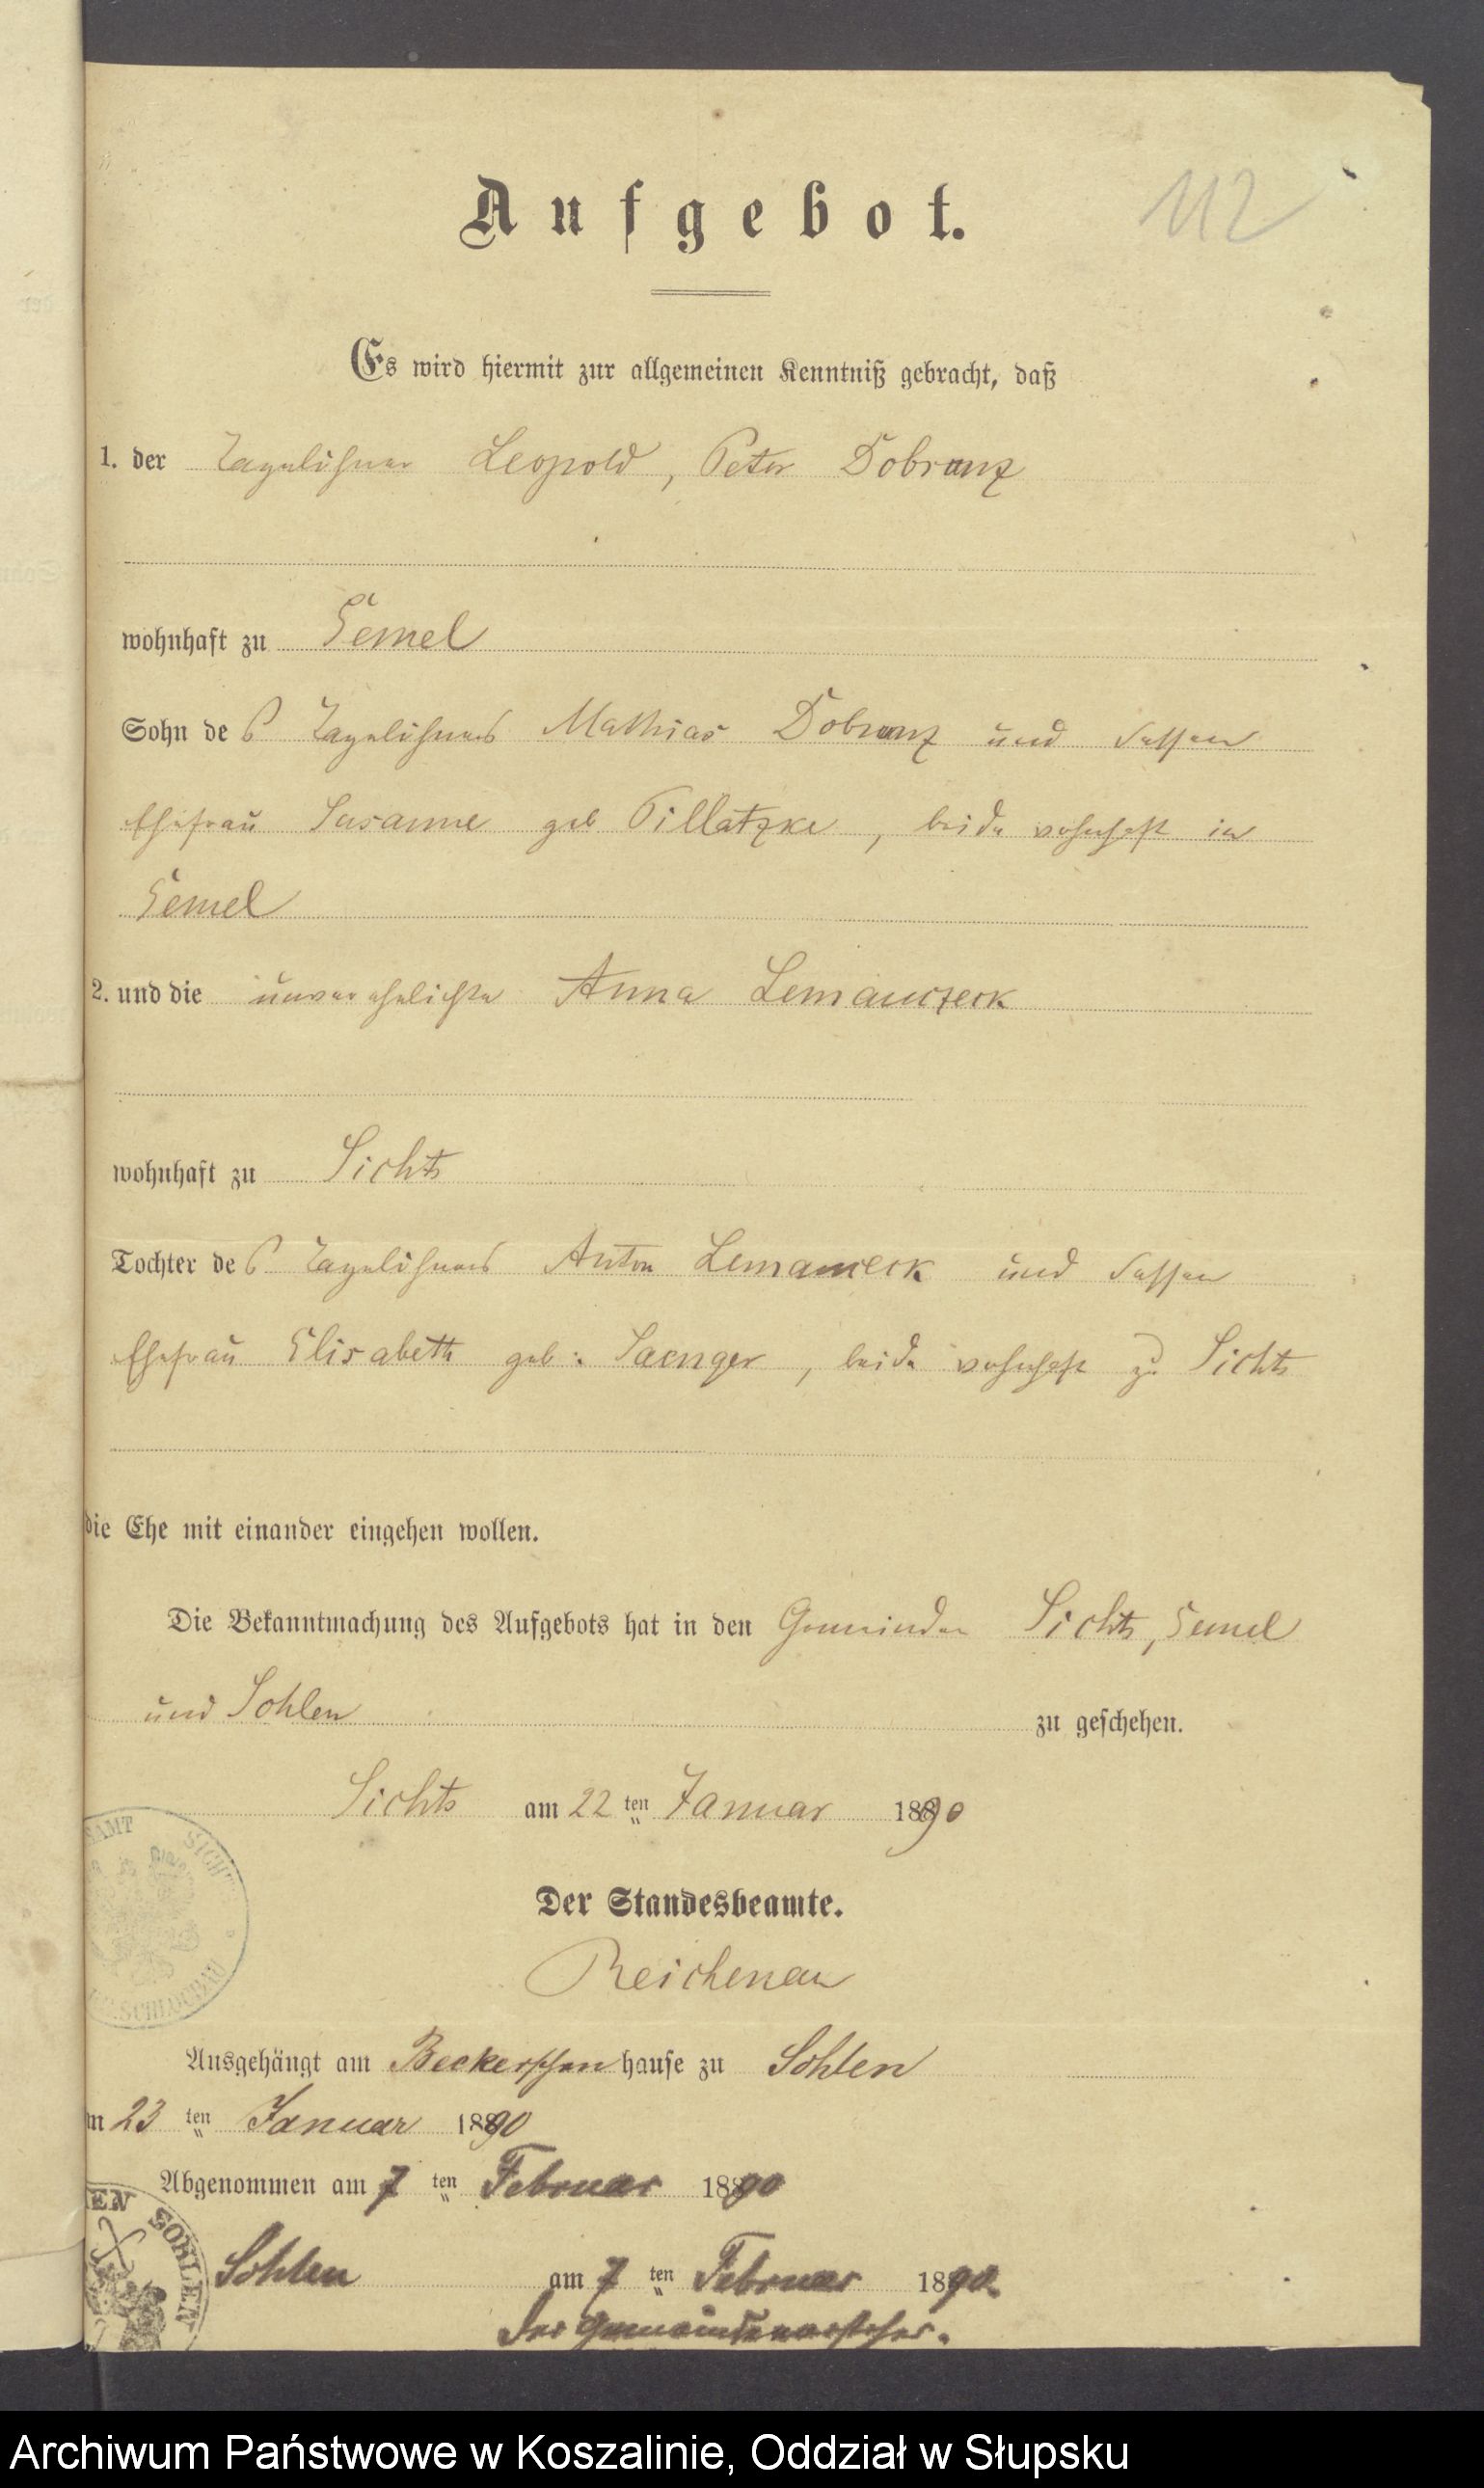 Aufgebot.
112
Es wird hiermit zur allgemeinen Kenntniß gebracht, daß
1. der Tagelöhner Leopold, Peter Dobranz
wohnhaft zu Semel
Sohn des Tagelöhners Mathias Dobranz und dessen
Ehefrau Susanne geb Pillatzke, beide wohnhaft in
Semel
2. und die unverehelichte Anna Lemanczeck
wohnhaft zu Sichts
Tochter des Tagelöhners Anton Lemanczeck und dessen
Ehefrau Elisabeth geb: Saenger, beide wohnhaft zu Sichts
die Ehe mit einander eingehen wollen.
Die Bekanntmachung des Aufgebots hat in den Gemeinden Sichts, Semel
und Sohlen zu geschehen.
Sichts am 22 ten Januar 1890
Der Standesbeamte.
Reichenau
AMT SICHTS SCHLOCHAU
Ausgehängt am Beckerschen hause zu Sohlen
m 23 ten Januar 1890
Abgenommen am 7 ten Februar 1890
EN SOHLEN
Sohlen am 7 ten Februar 1890.
Der Gemeindevorsteher.
Archiwum Państwowe w Koszalinie, Oddział w Słupsku